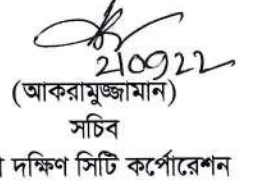 210922
(আকরামুজ্জামান)
সচিব
দক্ষিণ সিটি কর্পোরেশন